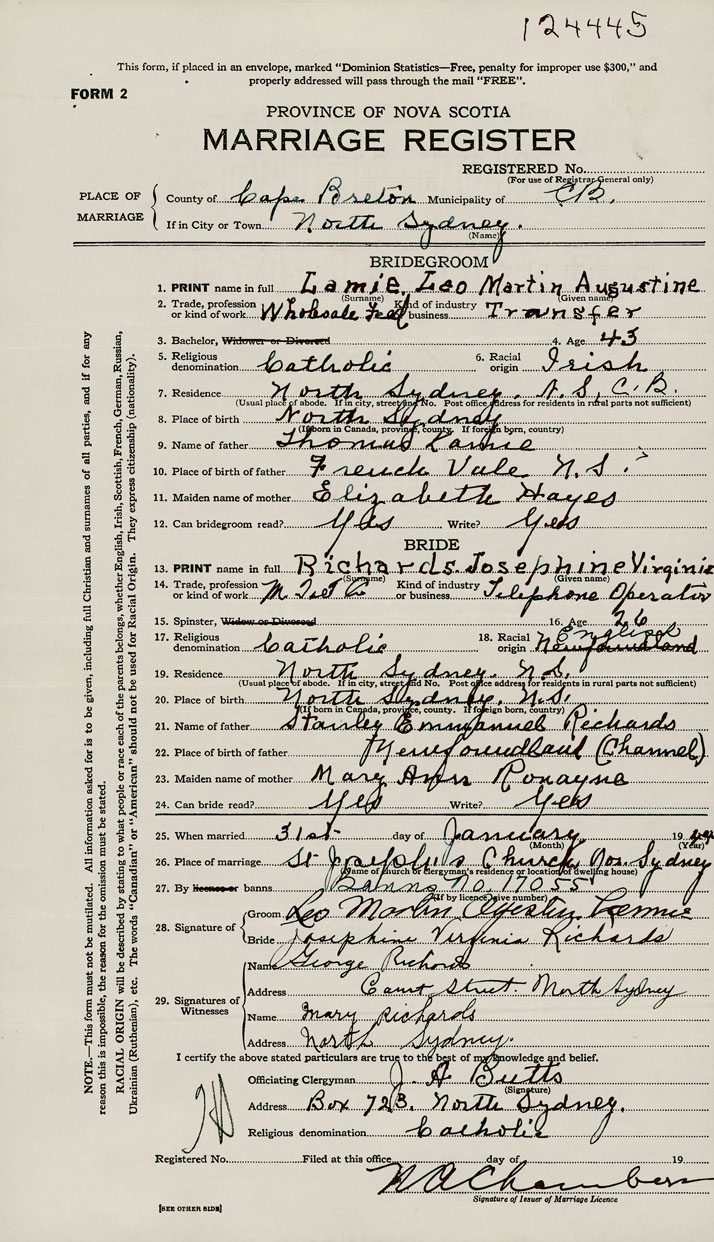 124445
This form, if placed in an envelope, marked "Dominion Statistics—Free, penalty for improper use $300," and
properly addressed will pass through the mail "FREE".
FORM 2
PROVINCE OF NOVA SCOTIA
MARRIAGE REGISTER
REGISTERED No.
(For use of Registrar General only)
PLACE OF MARRIAGE
County of Cape Breton Municipality of C.B.
If in City or Town North Sydney.
(Name)
BRIDEGROOM
1. PRINT name in full Lamie Leo Martin Augustine
(Surname) (Given name)
2. Trade, profession or kind of work Wholesale Feed Kind of industry or business Transfer
3. Bachelor, Widower or Divorced 4. Age 43
5. Religious denomination Catholic 6. Racial origin Irish
7. Residence North Sydney, N.S, C.B.
(Usual place of abode. If in city, street and No. Post office address for residents in rural parts not sufficient)
8. Place of birth North Sydney
(If born in Canada, province, county. If foreign born, country)
9. Name of father Thomas Lamie
10. Place of birth of father French Vale N.S.
11. Maiden name of mother Elizabeth Hayes
12. Can bridegroom read? Yes Write? Yes
BRIDE
13. PRINT name in full Richards Josephine Virginia
(Surname) (Given name)
14. Trade, profession or kind of work M T & T Co Kind of industry or business Telephone Operator
15. Spinster, Widow or Divorced 16. Age 26
17. Religious denomination Catholic 18. Racial origin English Newfoundland
19. Residence North Sydney. N.S.
(Usual place of abode. If in city, street and No. Post office address for residents in rural parts not sufficient)
20. Place of birth North Sydney, N.S.
(If born in Canada, province, county. If foreign born, country)
21. Name of father Stanley Emmanuel Richards
22. Place of birth of father Newfoundland (Channel)
23. Maiden name of mother Mary Ann Ronayne
24. Can bride read? Yes Write? Yes
25. When married 31st day of January 19
(Month) (Year)
26. Place of marriage St Joseph's Church, No. Sydney
(Name of church or clergyman's residence or location of dwelling house)
27. By licence or banns Banns No. 17055
(If by licence, give number)
28. Signature of
Groom Leo Martin Agestin Lamie
Bride Josephine Virginia Richards
29. Signatures of Witnesses
Name George Richards
Address Street. North Sydney
Name Mary Richards
Address North Sydney.
I certify the above stated particulars are true to the best of my knowledge and belief.
Officiating Clergyman J. A Butts
(Signature)
Address Box 723. North Sydney.
Religious denomination Catholic
Registered No. Filed at this office day of 19
Signature of Issuer of Marriage Licence
[SEE OTHER SIDE]
NOTE.—This form must not be mutilated. All information asked for is to be given, including full Christian and surnames of all parties, and if for any
reason this is impossible, the reason for the omission must be stated.
RACIAL ORIGIN will be described by stating to what people or race each of the parents belongs, whether English, Irish, Scottish, French, German, Russian,
Ukrainian (Ruthenian), etc. The words "Canadian" or "American" should not be used for Racial Origin. They express citizenship (nationality).